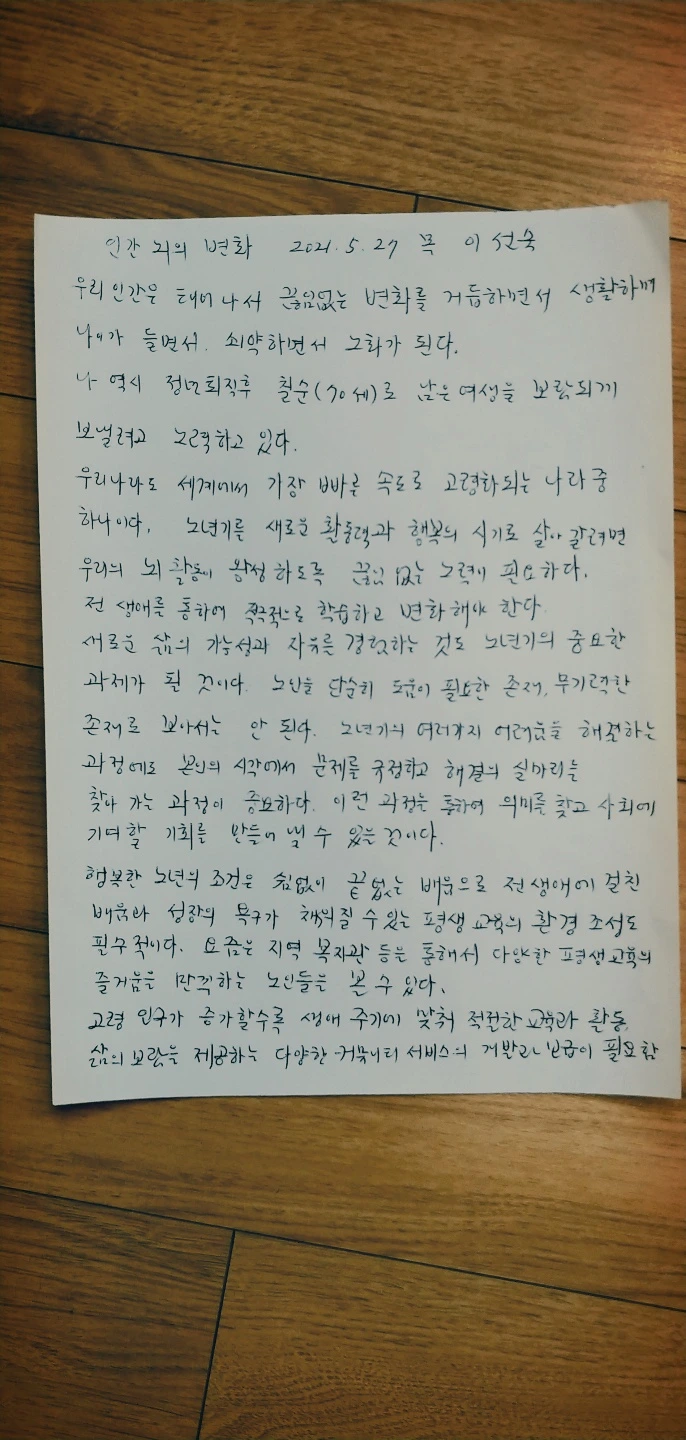 인간 뇌의 변화 2021. 5. 27 목 이선숙
우리 인간은 태어나서 끊임없는 변화를 거듭하면서 생활하며
나이가 들면서. 쇠약하면서 노화가 된다.
나 역시 정년퇴직후 칠순(70세)로 남은 여생을 보람되게
보낼려고 노력하고 있다.
우리나라도 세계에서 가장 빠른 속도로 고령화되는 나라 중
하나이다. 노년기를 새로운 활동력과 행복의 시기로 살아 갈려면
우리의 뇌 활동이 왕성 하도록 끊임 없는 노력이 필요하다.
전 생애를 통하여 적극적으로 학습하고 변화해야 한다.
새로운 삶의 가능성과 자유를 경험하는 것도 노년기의 중요한
과제가 될 것이다. 노인을 단순히 도움이 필요한 존재, 무기력한
존재로 보아서는 안 된다. 노년기의 여러가지 어려움을 해결하는
과정에도 본인의 시각에서 문제를 규정하고 해결의 실마리를
찾아 가는 과정이 중요하다. 이런 과정을 통하여 의미를 찾고 사회에
기여할 기회를 만들어 낼 수 있을 것이다.
행복한 노년의 조건은 쉼없이 끝없는 배움으로 전 생애에 걸친
배움과 성장의 욕구가 채워질 수 있는 평생 교육의 환경 조성도
필수적이다. 요즘은 지역 복지관 등을 통해서 다양한 평생교육의
즐거움을 만끽하는 노인들을 볼 수 있다.
고령 인구가 증가할수록 생애 주기에 맞춰 적절한 교육과 활동,
삶의 보람을 제공하는 다양한 커뮤니티 서비스의 개발과 보급이 필요함